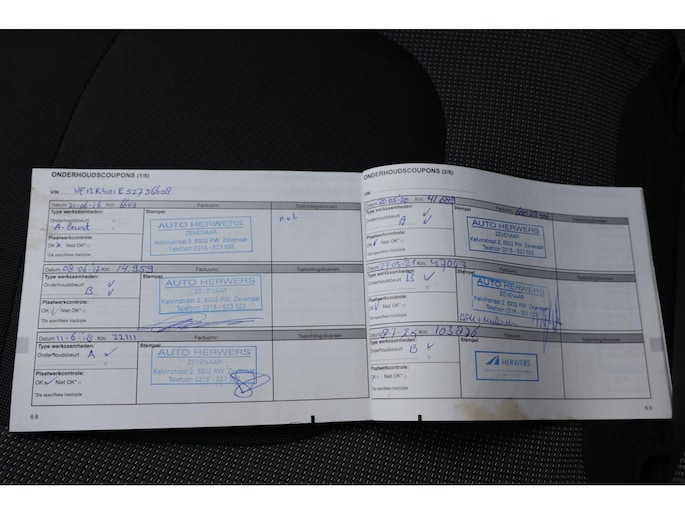 ONDERHOUDSCOUPONS (1/6)
VIN:
Datum: 21-06-16 Km:
Factuurnr.:
Toelichting/diversen
Type werkzaamheden:
Stempel
Onderhoudsbeurt
A-beurt
AUTO HERWERS
ZEVENAAR
Kelvinstraat 2, 6902 PW, Zevenaar
Telefoon 0316 - 523 523
nvt
Plaatwerkcontrole:
OK Niet OK*
*Zie specifieke bladzijde
Datum: 08-06-17 Km: 14.959
Factuurnr.:
Toelichting/diversen
Type werkzaamheden:
Stempel
Onderhoudsbeurt
B
AUTO HERWERS
ZEVENAAR
Kelvinstraat 2, 6902 PW, Zevenaar
Telefoon 0316 - 523 523
Plaatwerkcontrole:
OK Niet OK*
*Zie specifieke bladzijde
Datum: 11-6-18 Km: 22111
Factuurnr.:
Toelichting/diversen
Type werkzaamheden:
Stempel
Onderhoudsbeurt A
AUTO HERWERS
ZEVENAAR
Kelvinstraat 2, 6902 PW, Zevenaar
Telefoon 0316 - 523 523
Plaatwerkcontrole:
OK Niet OK*
*Zie specifieke bladzijde
6.8
ONDERHOUDSCOUPONS (2/6)
VIN:
Datum: 20-05-20 Km: 41689
Toelichting/diversen
Type werkzaamheden:
Stempel
Onderhoudsbeurt A
AUTO HERWERS
ZEVENAAR
Kelvinstraat 2, 6902 PW, Zevenaar
Telefoon 0316 - 523 523
Plaatwerkcontrole:
OK Niet OK*
*Zie specifieke bladzijde
Km: 47047
Factuurnr.:
Toelichting/diversen
Type werkzaamheden:
Stempel
Onderhoudsbeurt B
AUTO HERWERS
ZEVENAAR
Kelvinstraat 2, 6902 PW, Zevenaar
Telefoon 0316 - 523 523
Plaatwerkcontrole:
OK Niet OK*
*Zie specifieke bladzijde
Factuurnr.:
Toelichting/diversen
Type werkzaamheden:
Stempel
Onderhoudsbeurt B
HERWERS
Plaatwerkcontrole:
OK Niet OK*
*Zie specifieke bladzijde
6.9